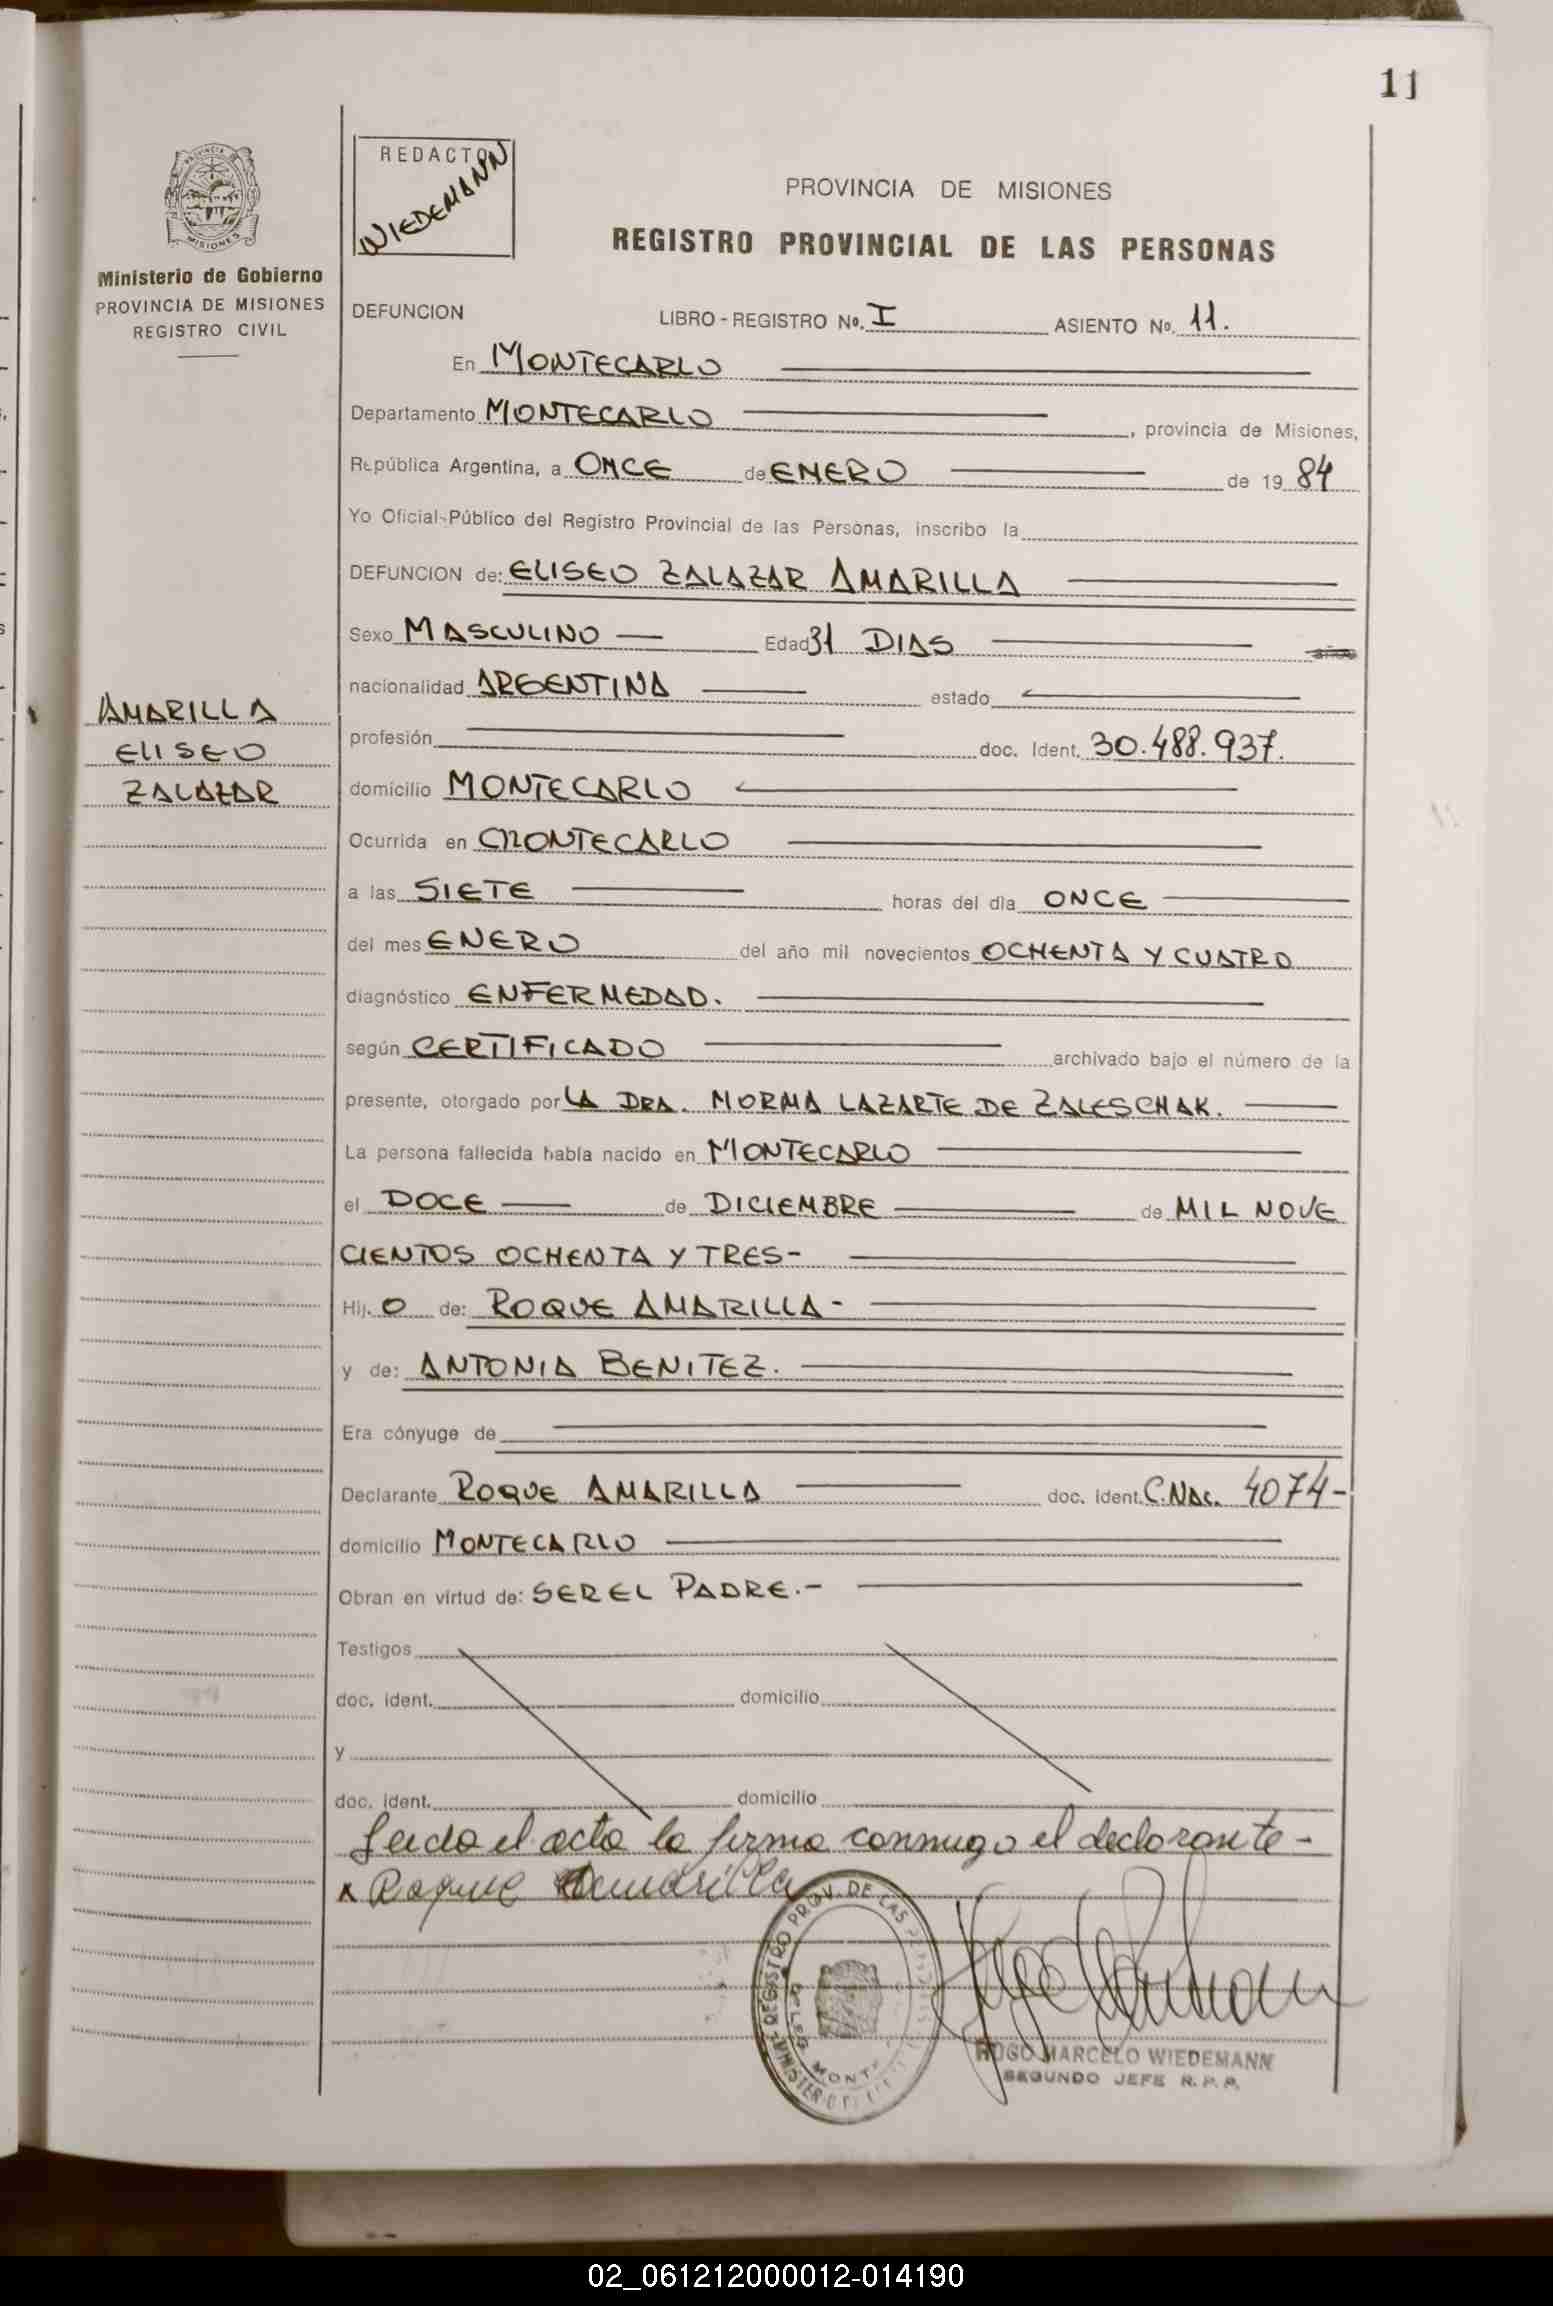 11
REDACTO
WIEDEMANN
PROVINCIA DE MISIONES
REGISTRO PROVINCIAL DE LAS PERSONAS
PROVINCIA DE
MISIONES
Ministerio de Gobierno
PROVINCIA DE MISIONES
REGISTRO CIVIL
DEFUNCION LIBRO - REGISTRO Nº. I ASIENTO Nº. 11.
En MONTECARLO
Departamento MONTECARLO, provincia de Misiones,
República Argentina, a ONCE de ENERO de 19 84
Yo Oficial Público del Registro Provincial de las Personas, inscribo la
DEFUNCION de: ELISEO ZALAZAR AMARILLA
Sexo MASCULINO Edad 31 DIAS
nacionalidad ARGENTINA estado
AMARILLA
ELISEO
ZALAZAR
profesión doc. Ident. 30.488.937.
domicilio MONTECARLO
Ocurrida en MONTECARLO
a las SIETE horas del día ONCE
del mes ENERO del año mil novecientos OCHENTA Y CUATRO
diagnóstico ENFERMEDAD.
según CERTIFICADO archivado bajo el número de la
presente, otorgado por LA DRA. NORMA LAZARTE DE ZALESCHAK.
La persona fallecida había nacido en MONTECARLO
el DOCE de DICIEMBRE de MIL NOVE
CIENTOS OCHENTA Y TRES-
Hij. O de: ROQUE AMARILLA-
y de: ANTONIA BENITEZ.
Era cónyuge de
Declarante ROQUE AMARILLA doc. ident. C.NAC. 4074-
domicilio MONTECARLO
Obran en virtud de: SER EL PADRE.-
Testigos
doc. ident. domicilio
y
doc. ident. domicilio
Leida el acta la firma conmigo el declarante-
x Roque Amarilla
REGISTRO PROV. DE LAS
MINISTERIO
DELEG MONT
HUGO MARCELO WIEDEMANN
SEGUNDO JEFE R.P.P.
02_061212000012-014190